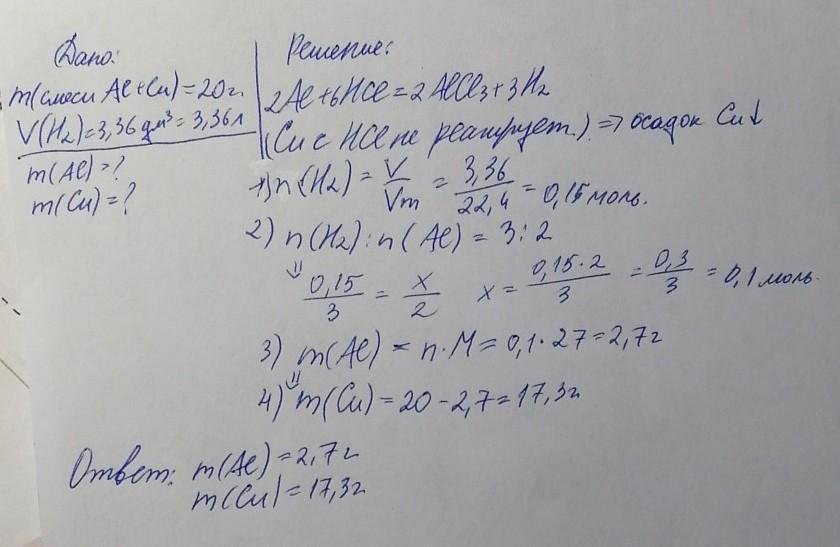 Дано:
m(смеси Al+Cu)=20г.
V(H₂)=3,36дм³=3,36л
m(Al)=?
m(Cu)=?
Решение:
2Al+6HCl=2AlCl₃+3H₂
(Cu с HCl не реагирует.) => осадок Cu↓
1) n(H₂) = V/Vm = 3,36/22,4 = 0,15 моль.
2) n(H₂):n(Al) = 3:2
⇓ 0,15/3 = x/2 x = 0,15·2/3 = 0,3/3 = 0,1 моль.
3) m(Al) = n·M = 0,1·27=2,7г
⇓
4) m(Cu) = 20-2,7=17,3г
Ответ: m(Al)=2,7г
m(Cu)=17,3г